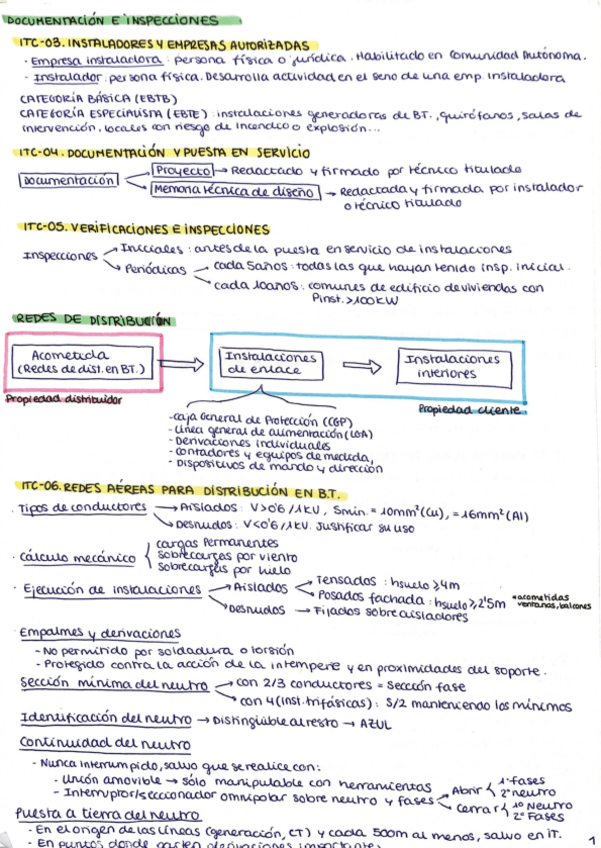 DOCUMENTACIÓN E INSPECCIONES
ITC-03. INSTALADORES Y EMPRESAS AUTORIZADAS
· Empresa instaladora: persona física o jurídica. Habilitado en Comunidad Autónoma.
- Instalador: persona física. Desarrolla actividad en el seno de una emp. instaladora
CATEGORÍA BÁSICA (EBTB)
CATEGORÍA ESPECIALISTA (EBTE): instalaciones generadoras de BT., quirófanos, salas de
intervención, locales con riesgo de incendio o explosión...
ITC-04. DOCUMENTACIÓN Y PUESTA EN SERVICIO
Documentación
Proyecto → Redactado y firmado por técnico titulado
Memoria técnica de diseño → Redactada y firmada por instalador
o técnico titulado
ITC-05. VERIFICACIONES E INSPECCIONES
Inspecciones
Iniciales: antes de la puesta en servicio de instalaciones
Periódicas
cada 5 años: todas las que hayan tenido insp. inicial.
cada 10 años: comunes de edificio de viviendas con
Pinst. >100KW
REDES DE DISTRIBUCIÓN
Acometida
(Redes de dist. en BT.)
Instalaciones
de enlace
Instalaciones
interiores
Propiedad distribuidor
Propiedad cliente
-Caja General de Protección (CGP)
-Línea general de alimentación (LGA)
-Derivaciones individuales
-Contadores y equipos de medida,
-Dispositivos de mando y dirección
ITC-06. REDES AÉREAS PARA DISTRIBUCIÓN EN B.T.
· Tipos de conductores
Aislados: V>0'6/1KV, Smin. = 10mm²(Cu), =16mm²(Al)
Desnudos: V<0'6/1KV. Justificar su uso
· Cálculo mecánico
cargas Permanentes
Sobrecargas por viento
Sobrecargas por hielo
· Ejecución de instalaciones
Aislados
Tensados: hsuelo ≥4m
Posados fachada: hsuelo ≥2'5m
*acometidas
ventanas, balcones
Desnudos → Fijados sobre aisladores
Empalmes y derivaciones
- No permitido por soldadura o torsión
- Protegido contra la acción de la intemperie y en proximidades del soporte.
Sección mínima del neutro
con 2/3 conductores = Sección fase
con 4 (inst. trifásicas): S/2 manteniendo los mínimos
Identificación del neutro → Distinguible al resto → AZUL
Continuidad del neutro
- Nunca interrumpido, salvo que se realice con:
- Unión amovible → sólo manipulable con herramientas
- Interruptor/seccionador omnipolar sobre neutro y fases
Abrir
1º fases
2º neutro
Cerrar
1º Neutro
2º Fases
Puesta a tierra del neutro
- En el origen de las líneas (generación, CT) y cada 500m al menos, salvo en IT.
- En puntos donde parten derivaciones importantes.
1